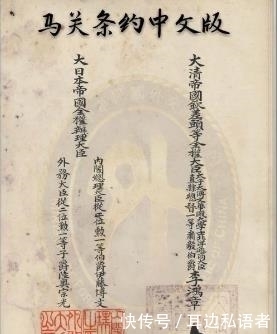 马关条约中文版
大清帝國欽差頭等全權大臣太子太傅文華殿大學士北洋通商大臣
直隸總督一等肅毅伯爵李鴻章
大日本帝國全權辦理大臣
內閣總理大臣從二位勲一等伯爵伊藤博文
外務大臣從二位勲一等子爵陸奧宗光
快传号/耳边私语者